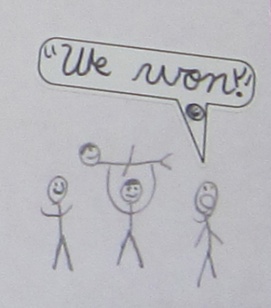 "We won!"